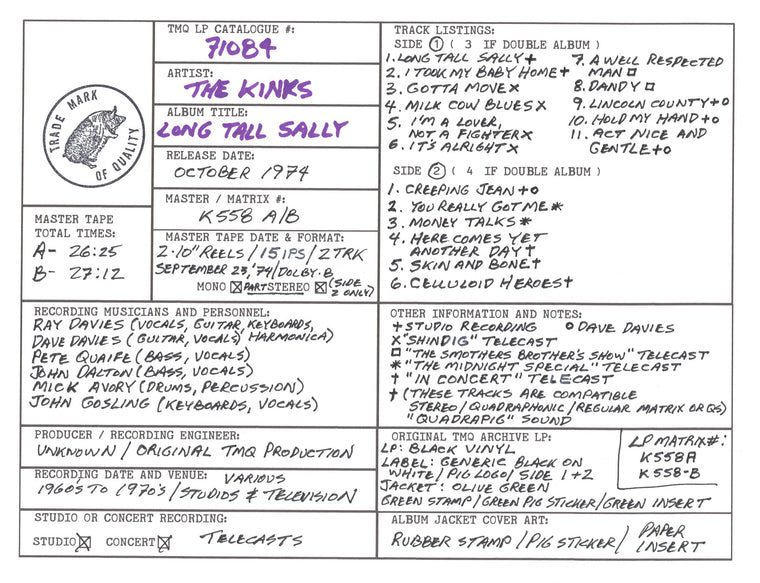 TRADE MARK OF QUALITY
TMQ LP CATALOGUE #:
71084
ARTIST:
THE KINKS
ALBUM TITLE:
LONG TALL SALLY
RELEASE DATE:
OCTOBER 1974
MASTER / MATRIX #:
K558 A/B
MASTER TAPE
TOTAL TIMES:
A- 26:25
B- 27:12
MASTER TAPE DATE & FORMAT:
2-10" REELS / 15 IPS / 2 TRK
SEPTEMBER 23, '74 / DOLBY-B
MONO ☒ PART STEREO ☒ (SIDE 2 ONLY)
TRACK LISTINGS:
SIDE ① ( 3 IF DOUBLE ALBUM )
1. LONG TALL SALLY +
2. I TOOK MY BABY HOME +
3. GOTTA MOVE X
4. MILK COW BLUES X
5. I'M A LOVER,
NOT A FIGHTER X
6. IT'S ALRIGHT X
7. A WELL RESPECTED
MAN □
8. DANDY □
9. LINCOLN COUNTY +o
10. HOLD MY HAND +o
11. ACT NICE AND
GENTLE +o
SIDE ② ( 4 IF DOUBLE ALBUM )
1. CREEPING JEAN +o
2. YOU REALLY GOT ME *
3. MONEY TALKS *
4. HERE COMES YET
ANOTHER DAY †
5. SKIN AND BONE †
6. CELLULOID HEROES †
RECORDING MUSICIANS AND PERSONNEL:
RAY DAVIES (VOCALS, GUITAR, KEYBOARDS,
HARMONICA)
DAVE DAVIES (GUITAR, VOCALS)
PETE QUAIFE (BASS, VOCALS)
JOHN DALTON (BASS, VOCALS)
MICK AVORY (DRUMS, PERCUSSION)
JOHN GOSLING (KEYBOARDS, VOCALS)
OTHER INFORMATION AND NOTES:
+ STUDIO RECORDING o DAVE DAVIES
X "SHINDIG" TELECAST
□ "THE SMOTHERS BROTHER'S SHOW" TELECAST
* "THE MIDNIGHT SPECIAL" TELECAST
† "IN CONCERT" TELECAST
† (THESE TRACKS ARE COMPATIBLE
STEREO / QUADRAPHONIC / REGULAR MATRIX OR QS)
"QUADRAPIG" SOUND
PRODUCER / RECORDING ENGINEER:
UNKNOWN / ORIGINAL TMQ PRODUCTION
RECORDING DATE AND VENUE: VARIOUS
1960'S TO 1970'S / STUDIOS & TELEVISION
STUDIO OR CONCERT RECORDING:
STUDIO ☒ CONCERT ☒ TELECASTS
ORIGINAL TMQ ARCHIVE LP:
LP: BLACK VINYL
LABEL: GENERIC BLACK ON
WHITE / PIG LOGO / SIDE 1+2
JACKET: OLIVE GREEN
GREEN STAMP / GREEN PIG STICKER / GREEN INSERT
LP MATRIX #:
K558A
K558-B
ALBUM JACKET COVER ART:
RUBBER STAMP / PIG STICKER / PAPER INSERT